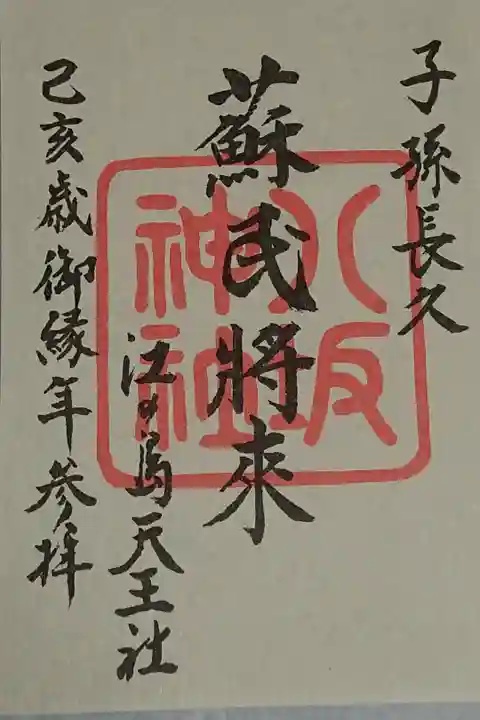 子孫長久
蘇民將來
江の島天王社
己亥歳御縁年参拝
八坂神社